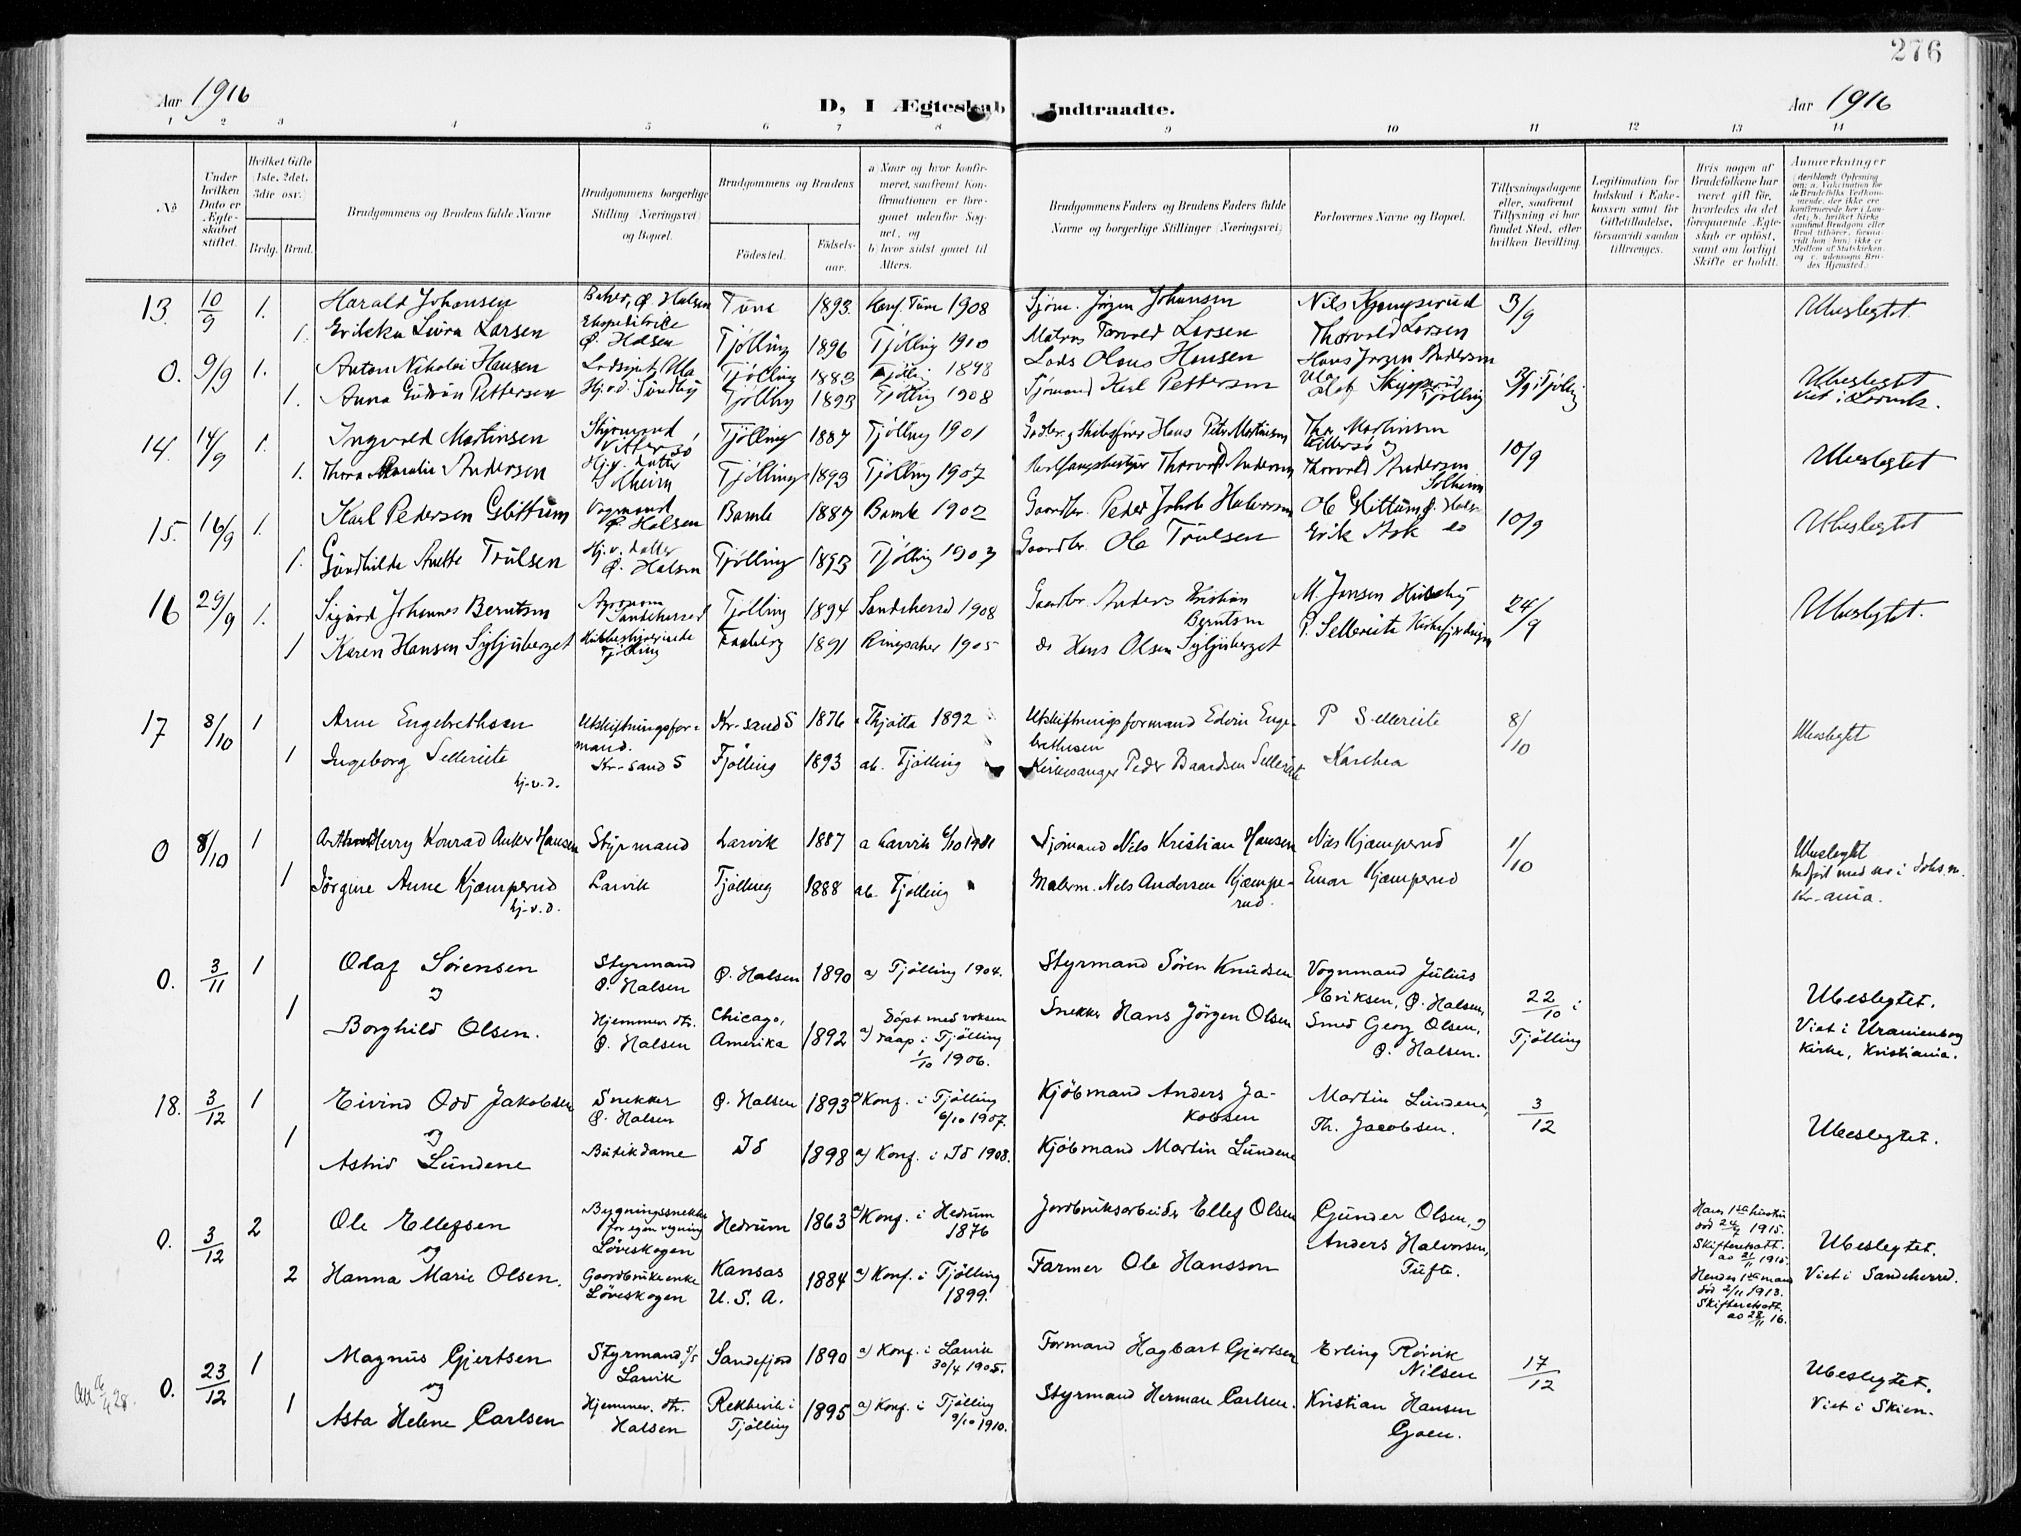 276
Aar 1916
D, I Ægteskab Indtraadte.
Aar 1916
1 2 3 4 5 6 7 8 9 10 11 12 13 14
No
Under hvilken Dato er Ægteskabet stiftet.
Hvilket Gifte (1ste, 2det, 3die osv.)
Brdg. Brud.
Brudgommens og Brudens fulde Navne
Brudgommens borgerlige Stilling (Næringsvei) og Bopæl.
Brudgommens og Brudens
Fødested.
Fødselsaar.
a) Naar og hvor konfirmeret, saafremt Konfirmationen er foregaaet udenfor Sognet, og
b) hvor sidst gaaet til Alters.
Brudgommens Faders og Brudens Faders fulde Navne og borgerlige Stillinger (Næringsvei)
Forlovernes Navne og Bopæl.
Tillysningsdagene eller, saafremt Tillysning ei har fundet Sted, efter hvilken Bevilling.
Legitimation for Indskud i Enkekassen samt for Giftetilladelse, forsaavidt saadan tiltrænges.
Hvis nogen af Brudefolkene har været gift før, hvorledes da det foregaaende Ægteskab er opløst, samt om lovligt Skifte er holdt.
Anmærkninger
13. 10/9 1. Harald Johansen Baker, Ø. Halsen Tune 1893 Konf. Tune 1908 Sjøm. Jørgen Johansen Nils Kjæmperud 3/9 Ubeslegtet.
1. Erikka Larsen Ekspeditrice Ø. Halsen Tjølling 1896 Tjølling 1910 Matros Torvald Larsen Thorvald Larsen
0. 9/9 1. Anton Nikolai Hansen Tjølling 1883 1898 Lods Olaus Hansen Hans Jørgen Andersen Ula Ubeslegtet
1. Anna Gudrun Pettersen Hj.v.d. Sundby Tjølling 1893 Tjølling 1908 Sjømand Karl Pettersen Tjølling Viet i Larvik.
14. 14/9 1. Ingvald Martinsen Styrmand Tjølling 1887 Tjølling 1901 Hans Petr Martinsen Thr Martinsen 10/9 Ubeslegtet
1. Thora Andersen Hj.v. datter Solheim Tjølling 1893 Tjølling 1907 Thorvald Andersen Thorvald Andersen Solheim
15. 16/9 1. Karl Pedersen Glittum Vogmand Ø. Halsen Bamle 1887 Bamle 1902 Gaardbr. Peder Jakob Halvorsen Ole Glittum, Ø. Hals. 10/9 Ubeslegtet
1. Gundhilde Anette Trulsen Hj.v. datter Ø. Halsen Tjølling 1893 Tjølling 1907 Gaardbr. Ole Trulsen Erik Ask do
16 29/9 1. Sigurd Johannes Berntsen Agronom Sandeherred Tjølling 1894 Sandeherred 1908 Gaardbr. Anders Kristian Berntsen M. Jensen Huseby 24/9 Ubeslegtet.
1 Karen Hansen Sigljuberget Tjølling Faaberg 1891 Ringsaker 1905 do Hans Olsen Sigljuberget P. Sellereite
17 8/10 1 Arne Engebrethsen Utskiftningsformand. Kr-sand S Kr-sand S 1876 Thjøtta 1892 Utskiftningsformand Edvin Engebrethsen P Sellereite 8/10 Ubeslegtet
1 Ingeborg Sellereite hj-v.d. Tjølling 1893 ab. Tjølling Kirkesanger Peder Baardsen Sellereite Karthea
0 8/10 1 Arthur Herry Konrad Anker Hansen Styrmand Larvik 1887 a Larvik 6/10 1901 Sjømand Nils Kristian Hansen Nils Kjæmperud 1/10 Ubeslegtet
1 Jørgine Anne Kjæmperud hj-v.d. Larvik Tjølling 1888 ab. Tjølling Malerm. Nils Andersen Kjæmperud. Einar Kjæmperud Kr-ania.
0. 3/11 1 Olaf Sørensen Styrmand Ø. Halsen Ø. Halsen 1890 a) Tjølling 1904. Styrmand Sören Knudsen Vognmand Julius Eriksen, Ø. Halsen, 22/10 i Tjølling Ubeslegtet.
og
1 Borghild Olsen. Hjemmev. dtr. Ø. Halsen Chicago, Amerika 1892 a) Døpt med voksen daap i Tjølling 1/10 1906. Snekker Hans Jörgen Olsen Smed Georg Olsen, Ø. Halsen. Viet i Uranienborg Kirke, Kristiania.
18. 3/12 1 Eivind Odd Jakobsen Snekker Ø. Halsen Ø. Halsen 1893 a) Konf. i Tjølling 6/10 1907. Kjöbmand Anders Jakobsen Martin Lundene, 3/12 Ubeslegtet.
og
1 Astrid Lundene Butikdame Id 1898 a) Konf. i Id 1908. Kjöbmand Martin Lundene Th. Jacobsen.
0. 3/12 2 Ole Ellefsen Bygningssnekker for egen regning Løveskogen Hedrum 1863 a) Konf. i Hedrum 1876 Jordbruksarbeider Ellef Olsen Gunder Olsen, og Hans 1ste hustru død 24/7 1915. Skifteretsatt. Ubeslegtet.
og
2 Hanna Marie Olsen. Gaardbrukerenke Løveskogen Kansas U. S. A. 1884 a) Konf. i Tjølling 1899. Farmer Ole Hansson Anders Halvorsen, Tufte. Hendes 1ste mand død 2/11 1913. Skifteretsatt. Viet i Sandeherred.
0. 23/12 1 Magnus Gjertsen Styrmand s/s Larvik Sandefjord 1890 a) Konf. i Larvik 30/4 1905. Formand Hagbart Gjertsen Erling Rørvik Nilsen 17/12 Ubeslegtet.
og
1 Asta Helene Carlsen Hjemmev. dtr. Halsen Rekkevik i Tjølling 1895 a) Konf. i Tjølling 9/10 1910. Styrmand Herman Carlsen. Kristian Hansen Goen. Viet i Skien.